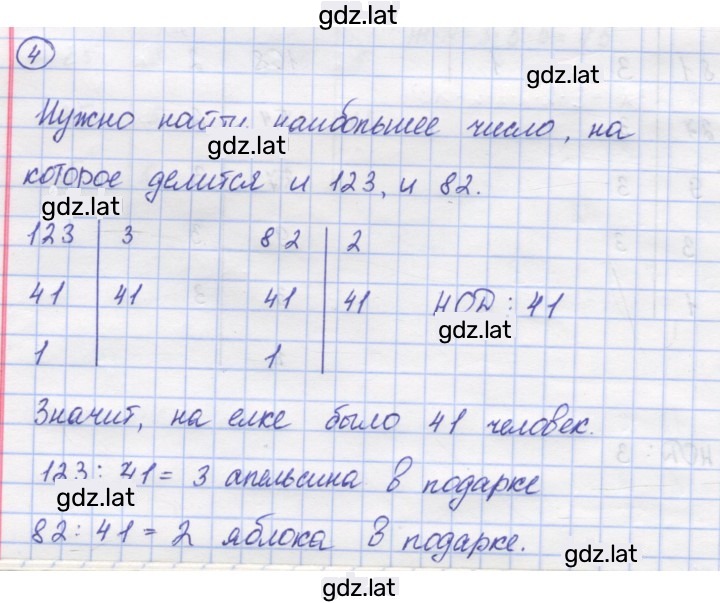 gdz.lat
4
gdz.lat
Нужно найти наибольшее число, на
gdz.lat
которое делится и 123, и 82.
gdz.lat
123 | 3   82 | 2
41 | 41   41 | 41   НОД: 41
gdz.lat
1 |   1 |
Значит, на елке было 41 человек.
123 : 41 = 3 апельсина в подарке
gdz.lat
82 : 41 = 2 яблока в подарке.
gdz.lat
gdz.lat